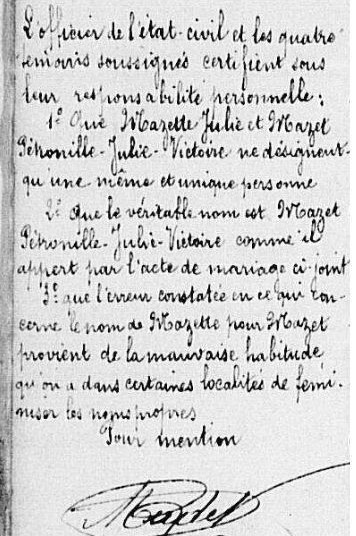 L'officier de l'état-civil et les quatre
témoins soussignés certifient sous
leur responsabilité personnelle :
1º Que Mazette Julie et Mazet
Pétronille-Julie-Victoire ne désignent
qu'une même et unique personne
2º que le véritable nom est Mazet
Pétronille-Julie-Victoire comme il
appert par l'acte de mariage ci-joint
3º que l'erreur constatée en ce qui con-
cerne le nom de Mazette pour Mazet
provient de la mauvaise habitude
qu'on a dans certaines localités de fémi-
niser les noms propres
Pour mention